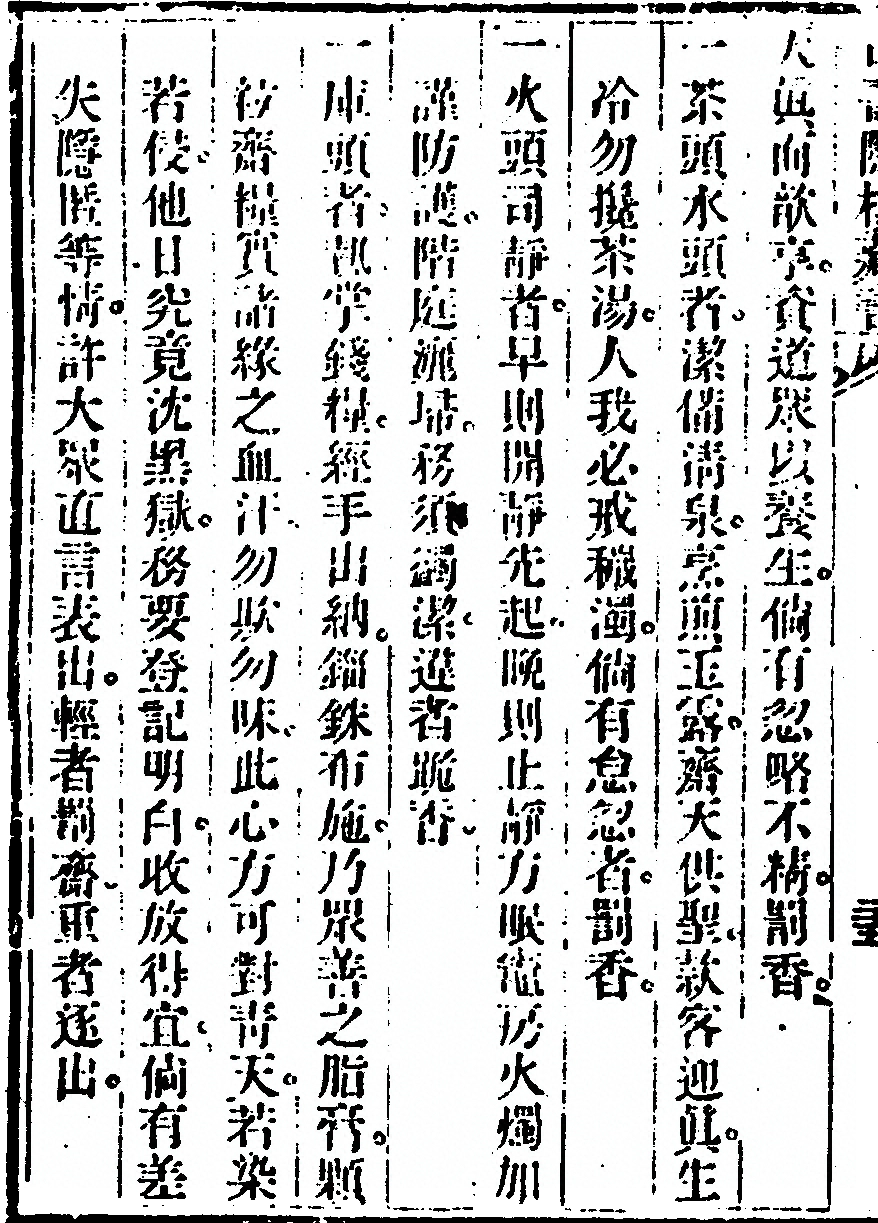 天眞而歆享。資道眾以養生。倘有忽略不精。罰香。
一茶頭水頭者。潔備淸泉。烹煎玉露。齋天供聖。款客迎眞。生
冷勿攙茶湯。人我必戒穢濁。倘有怠忽者。罰香。
一火頭司靜者。早則開靜先起。晚則止靜方眠。竈房火燭加
謹防護。階庭洒掃。務須蠲潔。違者跪香。
一庫頭者。執掌錢糧。經手出納。錙銖布施。乃眾善之脂膏。顆
粒齋糧。實諸緣之血汗。勿欺勿昧。此心方可對靑天。若染
若侵。他日究竟沈黑獄。務要登記明白。收放得宜。倘有差
失隱匿等情。許大眾直言表出。輕者罰齋。重者逐出。